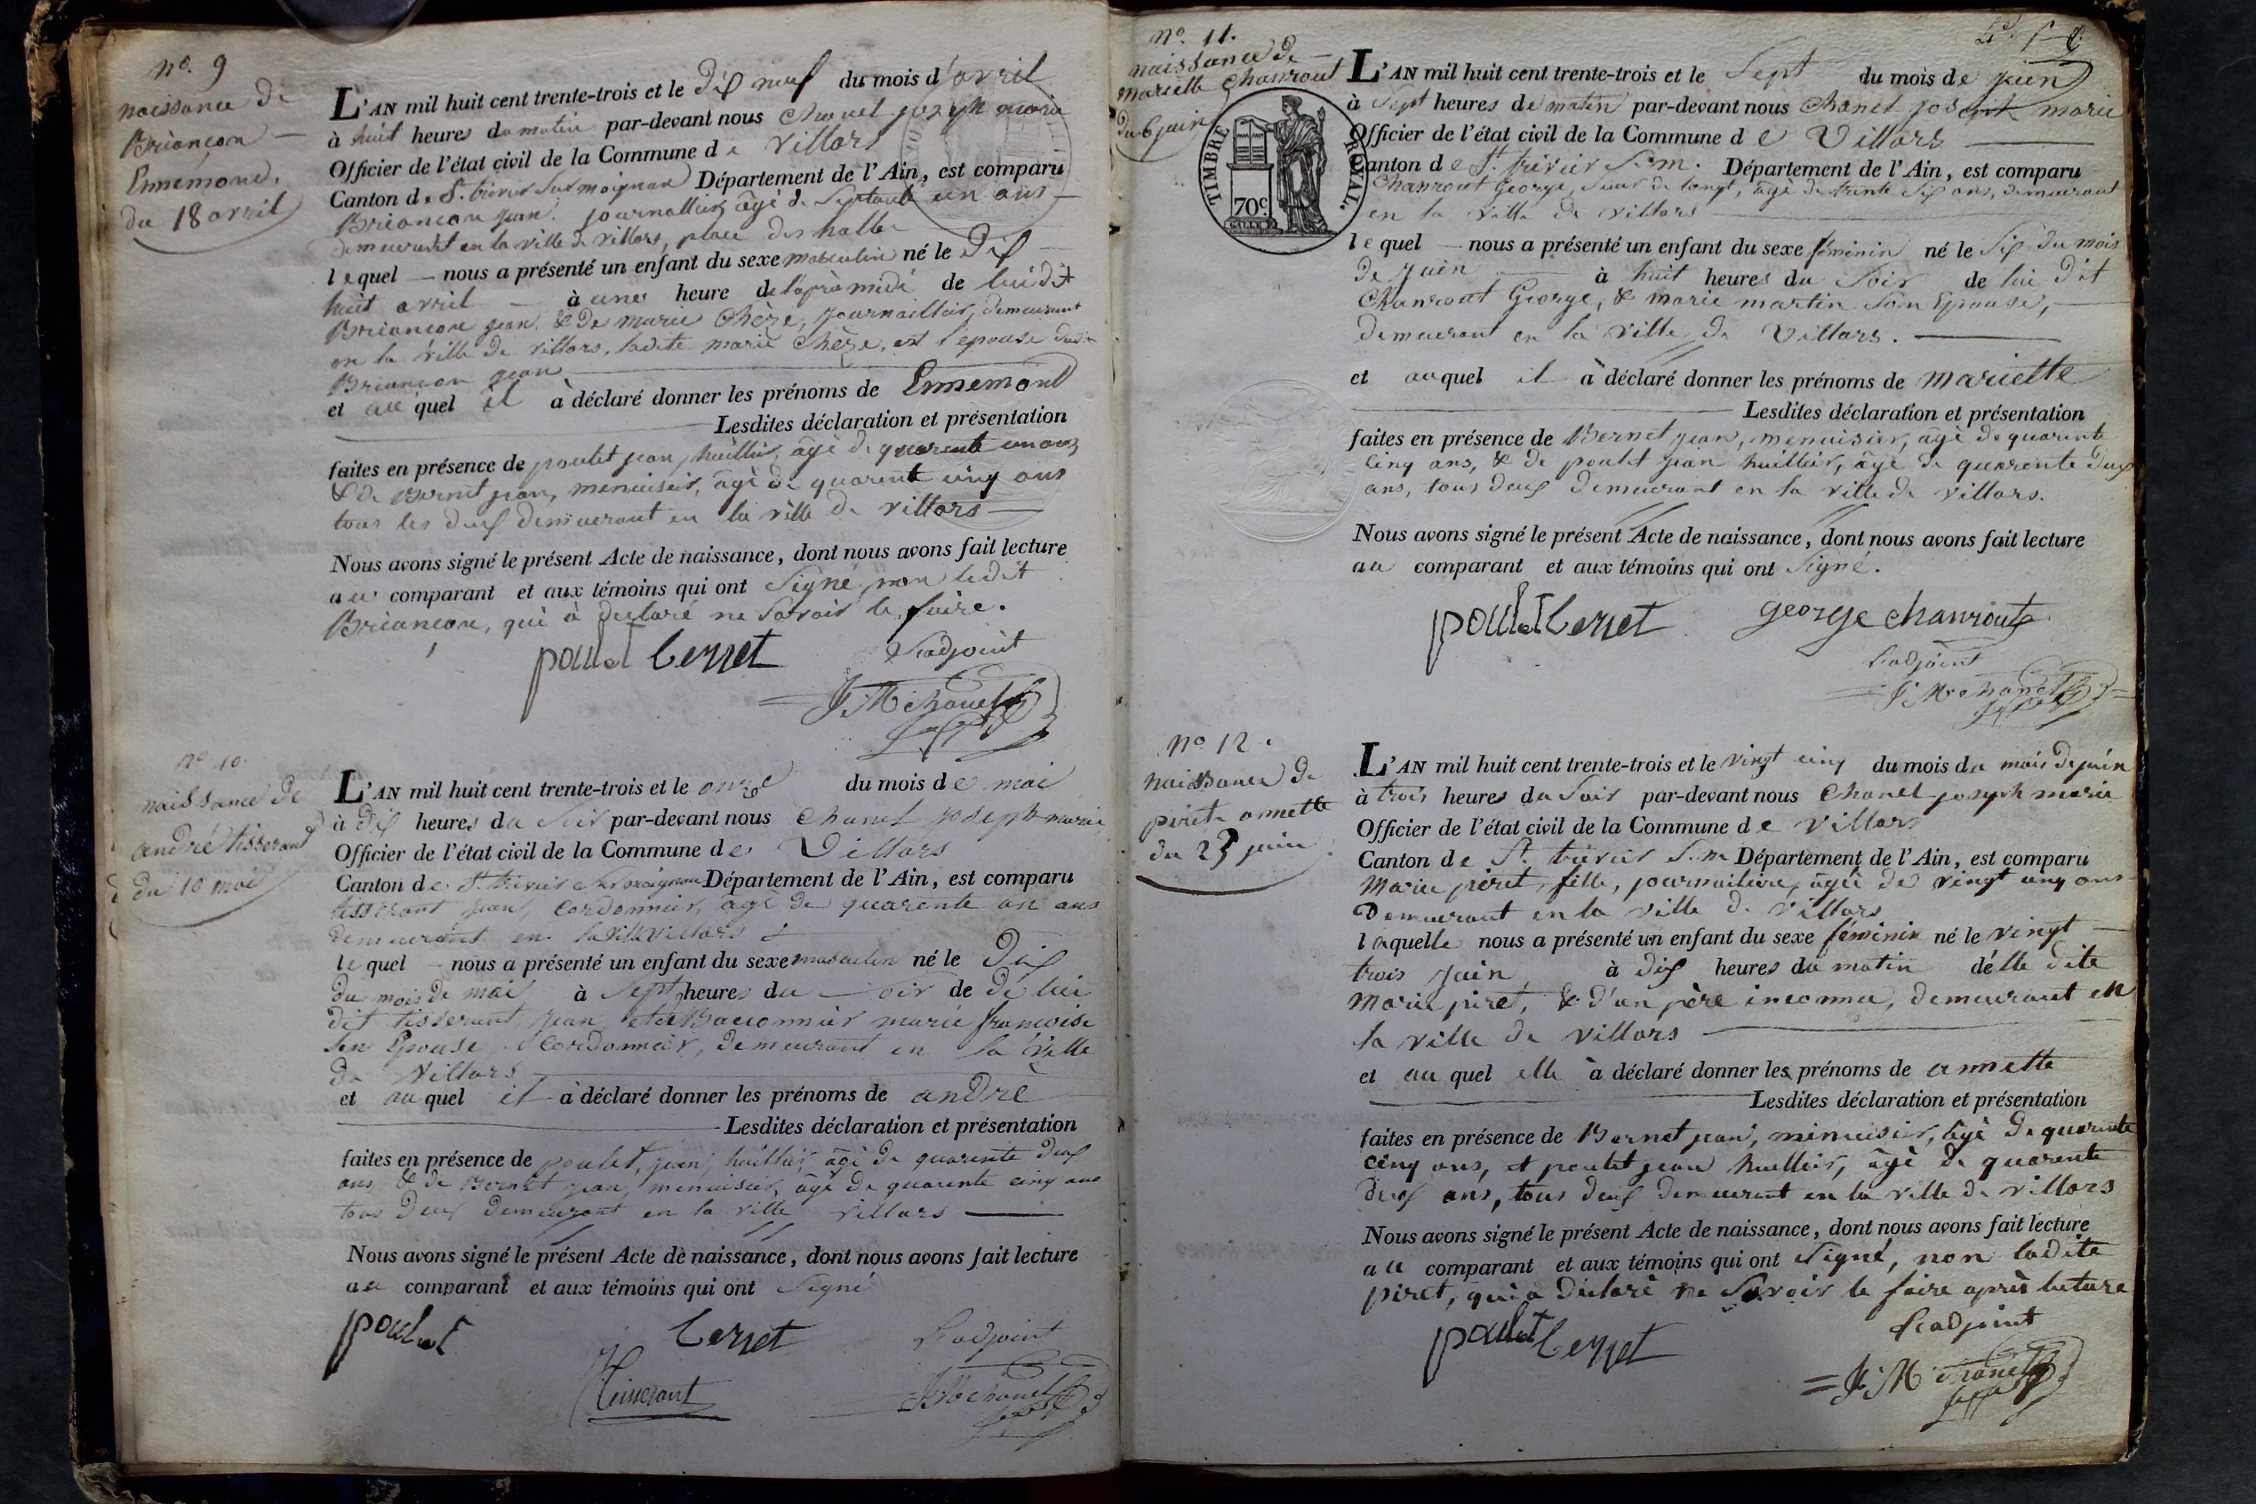 nº. 9
naissance de
Briançon
Ennemond.
du 18 avril
L'AN mil huit cent trente-trois et le dix neuf du mois d'avril
à huit heures du matin par-devant nous Chanel joseph marie
Officier de l'état civil de la Commune de Villars
Canton de St. trivier sur moignan Département de l'Ain, est comparu
Briançon jean, journallier, âgé de septante un ans
demeurant en la ville de villars, place des halles
lequel nous a présenté un enfant du sexe masculin né le dix
huit avril à une heure de l'après midi de lui dit
Briançon jean, & de marie Chèze, journaillier, demeurant
en la ville de villars, ladite marie Chèze, est l'épouse dudit
Briançon jean
et au quel il à déclaré donner les prénoms de Ennemond
Lesdites déclaration et présentation
faites en présence de poulet jean, huillier, âgé de quarente un ans
& de Bernet jean, menuisier, âgé de quarente cinq ans
tous les deux demeurant en la ville de villars
Nous avons signé le présent Acte de naissance, dont nous avons fait lecture
au comparant et aux témoins qui ont signé, non ledit
Briançon, qui à déclaré ne savoir le faire.
poulet bernet L'adjoint
J. M. Chanel
nº 10.
naissance de
andré tisserant
du 10 mai
L'AN mil huit cent trente-trois et le onze du mois de mai
à dix heures du soir par-devant nous Chanel joseph marie
Officier de l'état civil de la Commune de Villars
Canton de St. trivier sur moignan Département de l'Ain, est comparu
tisserant jean, cordonnier, âgé de quarente un ans
demeurant en la ville villars
lequel nous a présenté un enfant du sexe masculin né le dix
du mois de mai à sept heures du soir de de lui
dit tisserant jean, et de marie françoise
son épouse, cordonnier, demeurant en la ville
de villars
et au quel il à déclaré donner les prénoms de andrè
Lesdites déclaration et présentation
faites en présence de poulet, jean, huillier, âgé de quarente deux
ans & de Bernet jean, menuisier, âgé de quarente cinq ans
tous deux demeurant en la ville villars
Nous avons signé le présent Acte de naissance, dont nous avons fait lecture
au comparant et aux témoins qui ont signé
poulet bernet L'adjoint
Tisserant J. M. Chanel
nº. 11.
naissance de
mariette Chanrout
du 6 juin
TIMBRE ROYAL.
70c.
L'AN mil huit cent trente-trois et le sept du mois de juin
à sept heures de matin par-devant nous Chanel joseph marie
Officier de l'état civil de la Commune de Villars
Canton de St. trivier S. m. Département de l'Ain, est comparu
Chanrout George, sieur de longt, âgé de trente six ans, demeurant
en la ville de villars
lequel nous a présenté un enfant du sexe féminin né le six du mois
de juin à huit heures du soir de lui dit
Chanrout George, & marie martin son épouse,
demeurant en la ville de Villars.
et au quel il à déclaré donner les prénoms de mariette
Lesdites déclaration et présentation
faites en présence de Bernet jean, menuisier, âgé de quarente
cinq ans, & de poulet jean huillier, âgé de quarente deux
ans, tous deux demeurant en la ville de villars.
Nous avons signé le présent Acte de naissance, dont nous avons fait lecture
au comparant et aux témoins qui ont signé.
poulet bernet george chanrout
L'adjoint
J. M. Chanel
nº 12.
naissance de
piret annette
du 23 juin
L'AN mil huit cent trente-trois et le vingt cinq du mois du mois de juin
à trois heures du soir par-devant nous Chanel joseph marie
Officier de l'état civil de la Commune de Villars
Canton de St. trivier S. m Département de l'Ain, est comparu
Marie piret, fille, journailière, âgée de vingt cinq ans
Demeurant en la ville de villars
laquelle nous a présenté un enfant du sexe féminin né le vingt
trois juin à dix heures du matin délle dite
Marie piret, & d'un père inconnu, demeurant en
la ville de villars
et au quel elle à déclaré donner les prénoms de annette
Lesdites déclaration et présentation
faites en présence de Bernet jean, menuisier, âgé de quarente
cinq ans, et poulet jean huillier, âgé de quarente
deux ans, tous deux demeurant en la ville de villars
Nous avons signé le présent Acte de naissance, dont nous avons fait lecture
au comparant et aux témoins qui ont signé, non ladite
piret, qui à déclaré ne savoir le faire après lecture
poulet bernet L'adjoint
J. M. Chanel